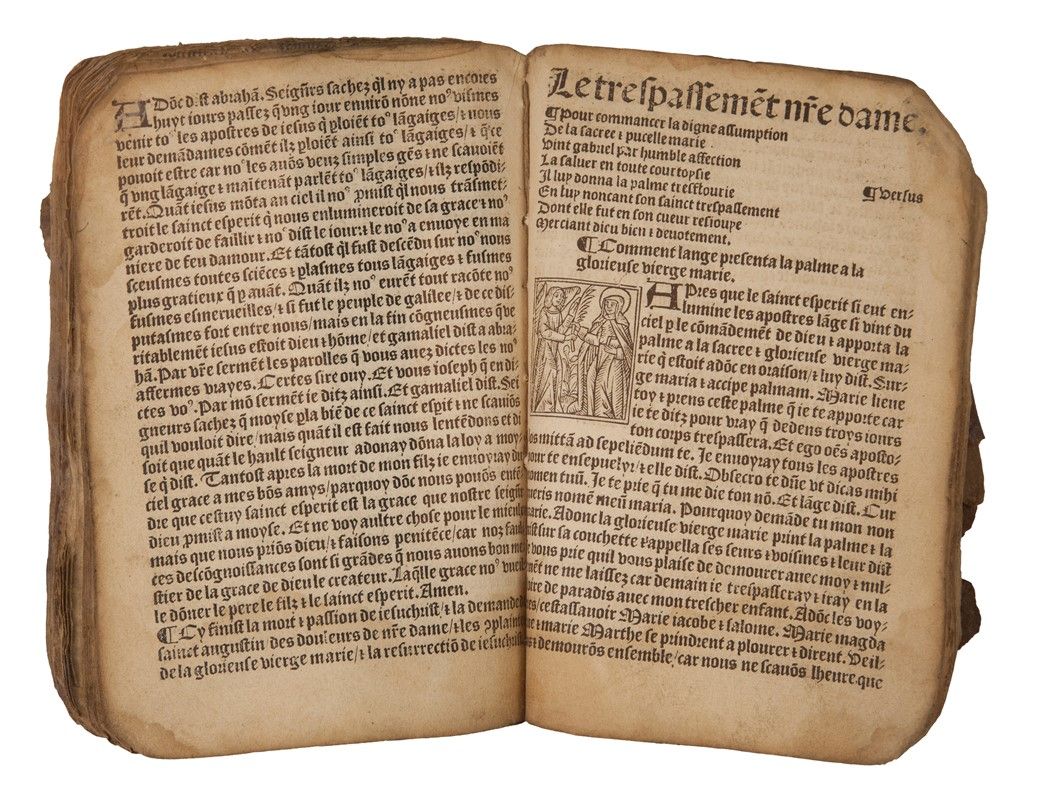 ADōc dist abrahā. Seigñrs sachez ql̄ ny a pas encores
huyt iours passez qūng iour enuirō nōne noꝰ vismes
venir toꝰ les apostres de iesus q̄ ploiēt toꝰ lāgaiges/⁊ nous
leur demādames cōmēt ilz ploiēt ainsi toꝰ lāgaiges/⁊ q̄ ce
pouoit estre car noꝰ les auōs veuz simples gēs ⁊ ne scauoiēt
q̄ vng lāgaige ⁊ maītenāt parlēt toꝰ lāgaiges/⁊ ilz respōdi-
rēt. Quāt iesus mōta au ciel il noꝰ pmist ql̄ nous trāsmet-
troit le sainct esperit q̄ nous enlumineroit de sa grace ⁊ noꝰ
garderoit de faillir ⁊ noꝰ dist le iour⁊ le noꝰ a enuoye en ma
niere de feu damour. Et tātost ql̄ fust descēdu sur noꝰ nous
sceusmes toutes sciēces ⁊ plasmes tous lāgaiges ⁊ fusmes
plus gratieux q̄ p auāt. Quāt ilz noꝰ eurēt tout racōte noꝰ
fusmes esmerueilles/⁊ si fut le peuple de galilee/⁊ de ce dis-
putasmes fort entre nous/mais en la fin cōgneusmes q̄ ve
ritablemēt iesus estoit dieu ⁊ hōme/et gamaliel dist a abra-
hā. Par vr̄e sermēt les parolles q̄ vous auez dictes les noꝰ
affermes vrayes. Certes sire ouy. Et vous ioseph q̄ en di-
ctes voꝰ. Par mō sermēt ie ditz ainsi. Et gamaliel dist. Sei
gneurs sachez q̄ moyse pla biē de ce sainct espit ⁊ ne scauiōs
quil vouloit dire/mais quāt il est fait nous lentēdons et di
soit que quāt le hault seigneur adonay dōna la loy a moy-
se q̄ dist. Tantost apres la mort de mon filz ie enuoyray du
ciel grace a mes bōs amys/parquoy dōc nous pouōs entē-
dre que cestuy sainct esperit est la grace que nostre seigñr
dieu pmist a moyse. Et ne voy aultre chose pour le mieulx
mais que nous priōs dieu/⁊ faisons penitēce/car noz faul
tes descōgnoissances sont si grādes q̄ nous auons bon me
stier de la grace de dieu le createur. Laq̄lle grace noꝰ vueil
le dōner le pere le filz ⁊ le sainct esperit. Amen.
¶ Cy finist la mort ⁊ passion de iesuchrist/⁊ la demande
sainct augustin des douleurs de nr̄e dame/⁊ les plaintz
de la glorieuse vierge marie/⁊ la resurrectiō de iesuchrist
Le trespassemēt nr̄e dame.
¶ Pour commancer la digne assumption
De la sacree ⁊ pucelle marie.
Vint gabriel par humble affection
La saluer en toute courtoysie
Il luy donna la palme tresflourie ¶ Versus
En luy noncant son sainct trespassement
Dont elle fut en son cueur resioupe
Merciant dieu bien ⁊ deuotement.
¶ Comment lange presenta la palme a la
glorieuse vierge marie.
APres que le sainct esperit si eut en-
lumine les apostres lāge si vint du
ciel p le cōmādemēt de dieu ⁊ apporta la
palme a la sacree ⁊ glorieuse vierge ma-
rie q̄ estoit adōc en oraison/⁊ luy dist. Sur-
ge maria ⁊ accipe palmam. Marie lieue
toy ⁊ prens ceste palme q̄ ie te apporte car
ie te ditz pour vray q̄ dedens troys iours
ton corps trespassera. Et ego oēs aposto-
los mittā ad sepeliēdum te. Je enuoyray tous les apostres
pour te ensepuelyr/⁊ elle dist. Obsecro te dn̄e vt dicas mihi
nomen tuū. Je te prie q̄ tu me die ton nō. Et lāge dist. Cur
queris nomē meū maria. Pourquoy demāde tu mon non
marie. Adonc la glorieuse vierge marie print la palme ⁊ la
mist sur sa couchette ⁊ appella ses seurs ⁊ voisines ⁊ leur dist
ie vous prie quil vous plaise de demourer auec moy ⁊ nul-
lemēt ne me laissez car demain ie trespasseray ⁊ iray en la
gloire de paradis auec mon trescher enfant. Adōc les voy-
sines/cestassauoir Marie iacobe ⁊ salome. Marie magda
lene ⁊ marie Marthe se prindrent a plourer ⁊ dirent. Veil-
lons ⁊ demourōs ensemble/car nous ne scauōs lheure que